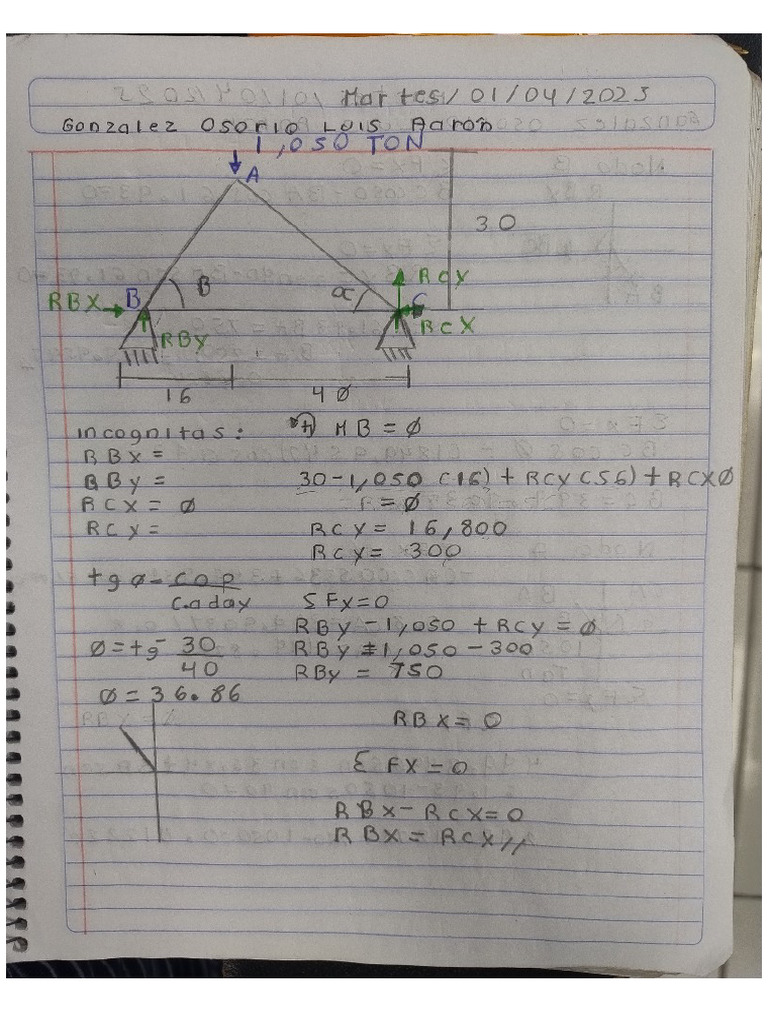 Martes/01/04/2025
Gonzalez Osorio Luis Aaron
1,050 TON
A
30
RCY
RBX B B α C
RBY RCX
16 40
incognitas: +) MB = Ø
RBX =
RBY = 30-1,050 (16) + RCY (56) + RCXØ
RCX = Ø = Ø
RCY = RCY = 16,800
RCY = 300
tgø= cop
c.aday ΣFX=0
RBY -1,050 + RCY = Ø
Ø=tg- 30 RBY = 1,050 - 300
40 RBY = 750
Ø = 36.86
RBX = 0
ΣFX=0
RBX- RCX=0
RBX= RCX//